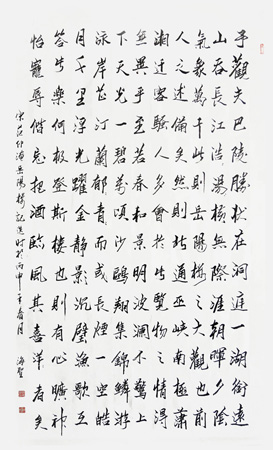 予觀夫巴陵勝狀在洞庭一湖銜遠
山吞長江浩湯橫無際涯朝暉夕陰
氣象萬千此則岳陽樓之大觀也前
人之述備矣然則北通巫峽南極瀟
湘遷客騷人多會於此覽物之情得
無異乎至若春和景明波瀾不驚上
下天光一碧萬頃沙鷗翔集錦鱗游
泳岸芷汀蘭郁青而或長煙一空皓
月千里浮光躍金靜影沉璧漁歌互
答此樂何極登斯樓也則有心曠神
怡寵辱偕忘把酒臨風其喜洋者矣
宋范仲淹岳陽樓記選時於丙申年春月 海聖